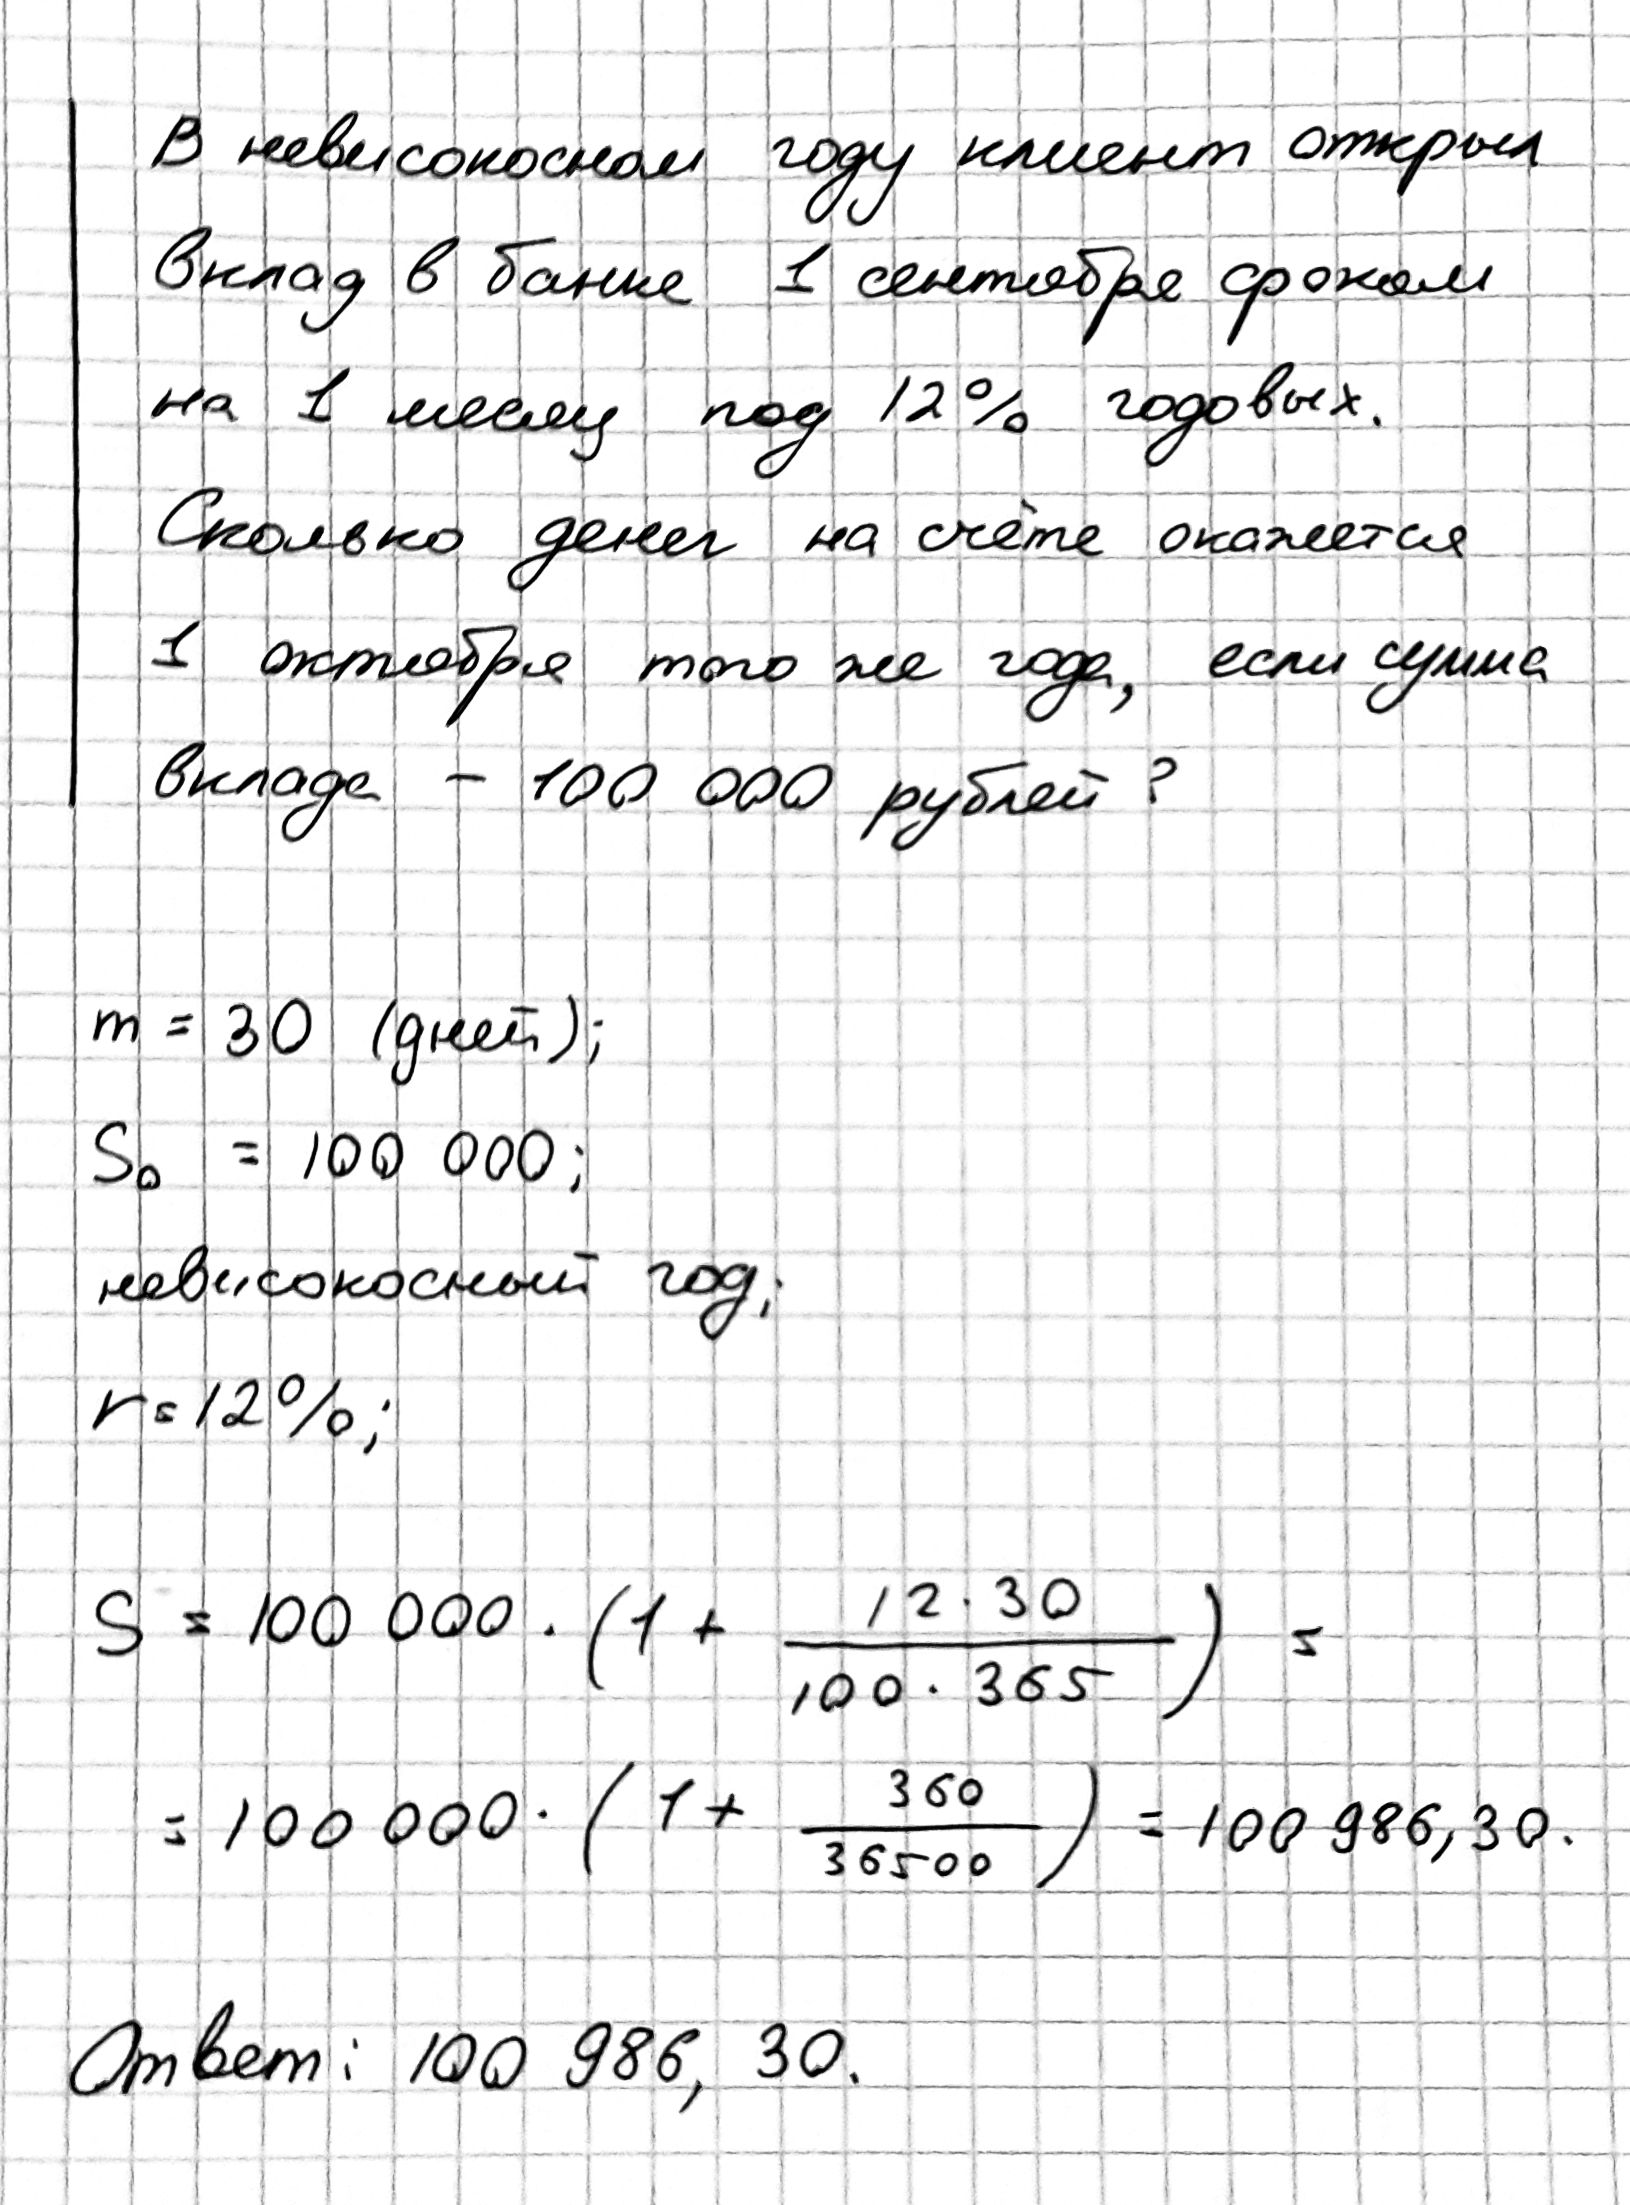 В невисокосном году клиент открыл
вклад в банке 1 сентября сроком
на 1 месяц под 12% годовых.
Сколько денег на счёте окажется
1 октября того же года, если сумма
вклада - 100 000 рублей?
m = 30 (дней);
S₀ = 100 000;
невисокосный год;
r = 12%;
S = 100 000 · (1 + 12·30 / 100·365) =
= 100 000 · (1 + 360 / 36500) = 100 986,30.
Ответ: 100 986, 30.